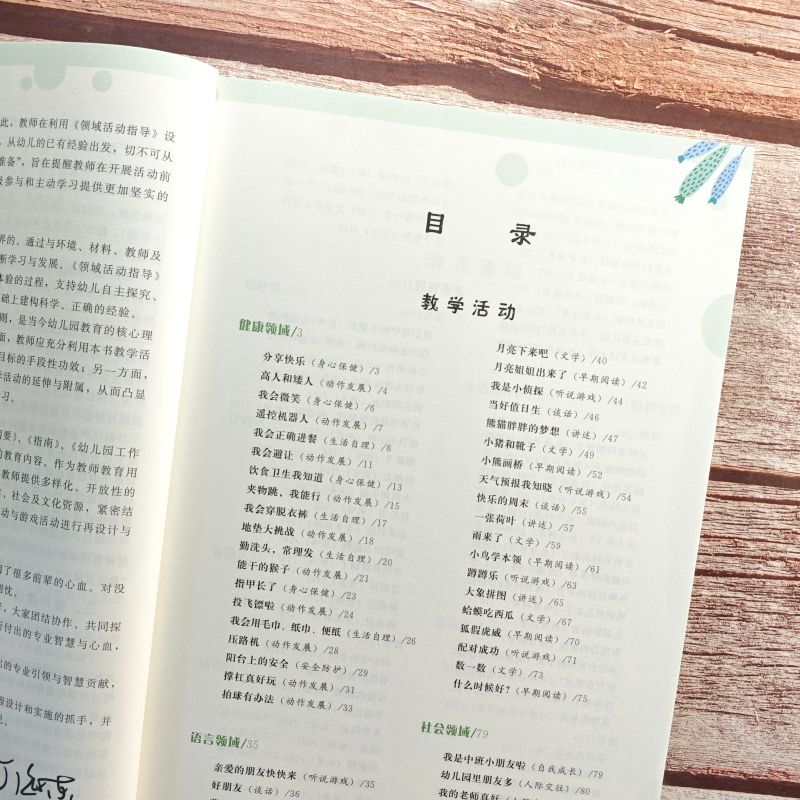 此，教师在利用《领域活动指导》设
从幼儿的已有经验出发，切不可从
准备”，旨在提醒教师在开展活动前
参与和主动学习提供更加坚实的
界的，通过与环境、材料、教师及
断学习与发展，《领域活动指导》
体验的过程，支持幼儿自主探究、
础上建构科学、正确的经验。
则，是当今幼儿园教育的核心理
面，教师应充分利用本书教学活
目标的手段性功效；另一方面，
学活动的延伸与附属，从而凸显
习。
要》、《指南》、《幼儿园工作
的教育内容。作为教师教育用
教师提供多样化、开放性的
社会及文化资源，紧密结
动与游戏活动进行再设计与
了很多前辈的心血。对没
谢忱。
大家团结协作、共同探
所付出的专业智慧与心血，
出的专业引领与智慧贡献，
程设计和实施的抓手，并
目 录
教学活动
健康领域/3
分享快乐（身心保健）/3
高人和矮人（动作发展）/4
我会微笑（身心保健）/6
遥控机器人（动作发展）/7
我会正确进餐（生活自理）/8
我会避让（动作发展）/11
饮食卫生我知道（身心保健）/13
夹物跳，我能行（动作发展）/15
我会穿脱衣裤（生活自理）/17
地垫大挑战（动作发展）/18
勤洗头，常理发（生活自理）/20
能干的猴子（动作发展）/21
指甲长了（身心保健）/23
投飞镖啦（动作发展）/24
我会用毛巾、纸巾、便纸（生活自理）/26
压路机（动作发展）/28
阳台上的安全（安全防护）/29
撑杠真好玩（动作发展）/31
拍球有办法（动作发展）/33
语言领域/35
亲爱的朋友快快来（听说游戏）/35
好朋友（谈话）/36
月亮下来吧（文学）/40
月亮姐姐出来了（早期阅读）/42
我是小侦探（听说游戏）/44
当好值日生（谈话）/46
熊猫胖胖的梦想（讲述）/47
小猪和靴子（文学）/49
小熊画桥（早期阅读）/52
天气预报我知晓（听说游戏）/54
快乐的周末（谈话）/55
一张荷叶（讲述）/57
雨来了（文学）/59
小鸟学本领（早期阅读）/61
蹲蹲乐（听说游戏）/63
大象拼图（讲述）/65
蛤蟆吃西瓜（文学）/67
狐假虎威（早期阅读）/70
配对成功（听说游戏）/71
数一数（文学）/73
什么时候好？（早期阅读）/75
社会领域/79
我是中班小朋友啦（自我成长）/79
幼儿园里朋友多（人际交往）/80
我的老师真好